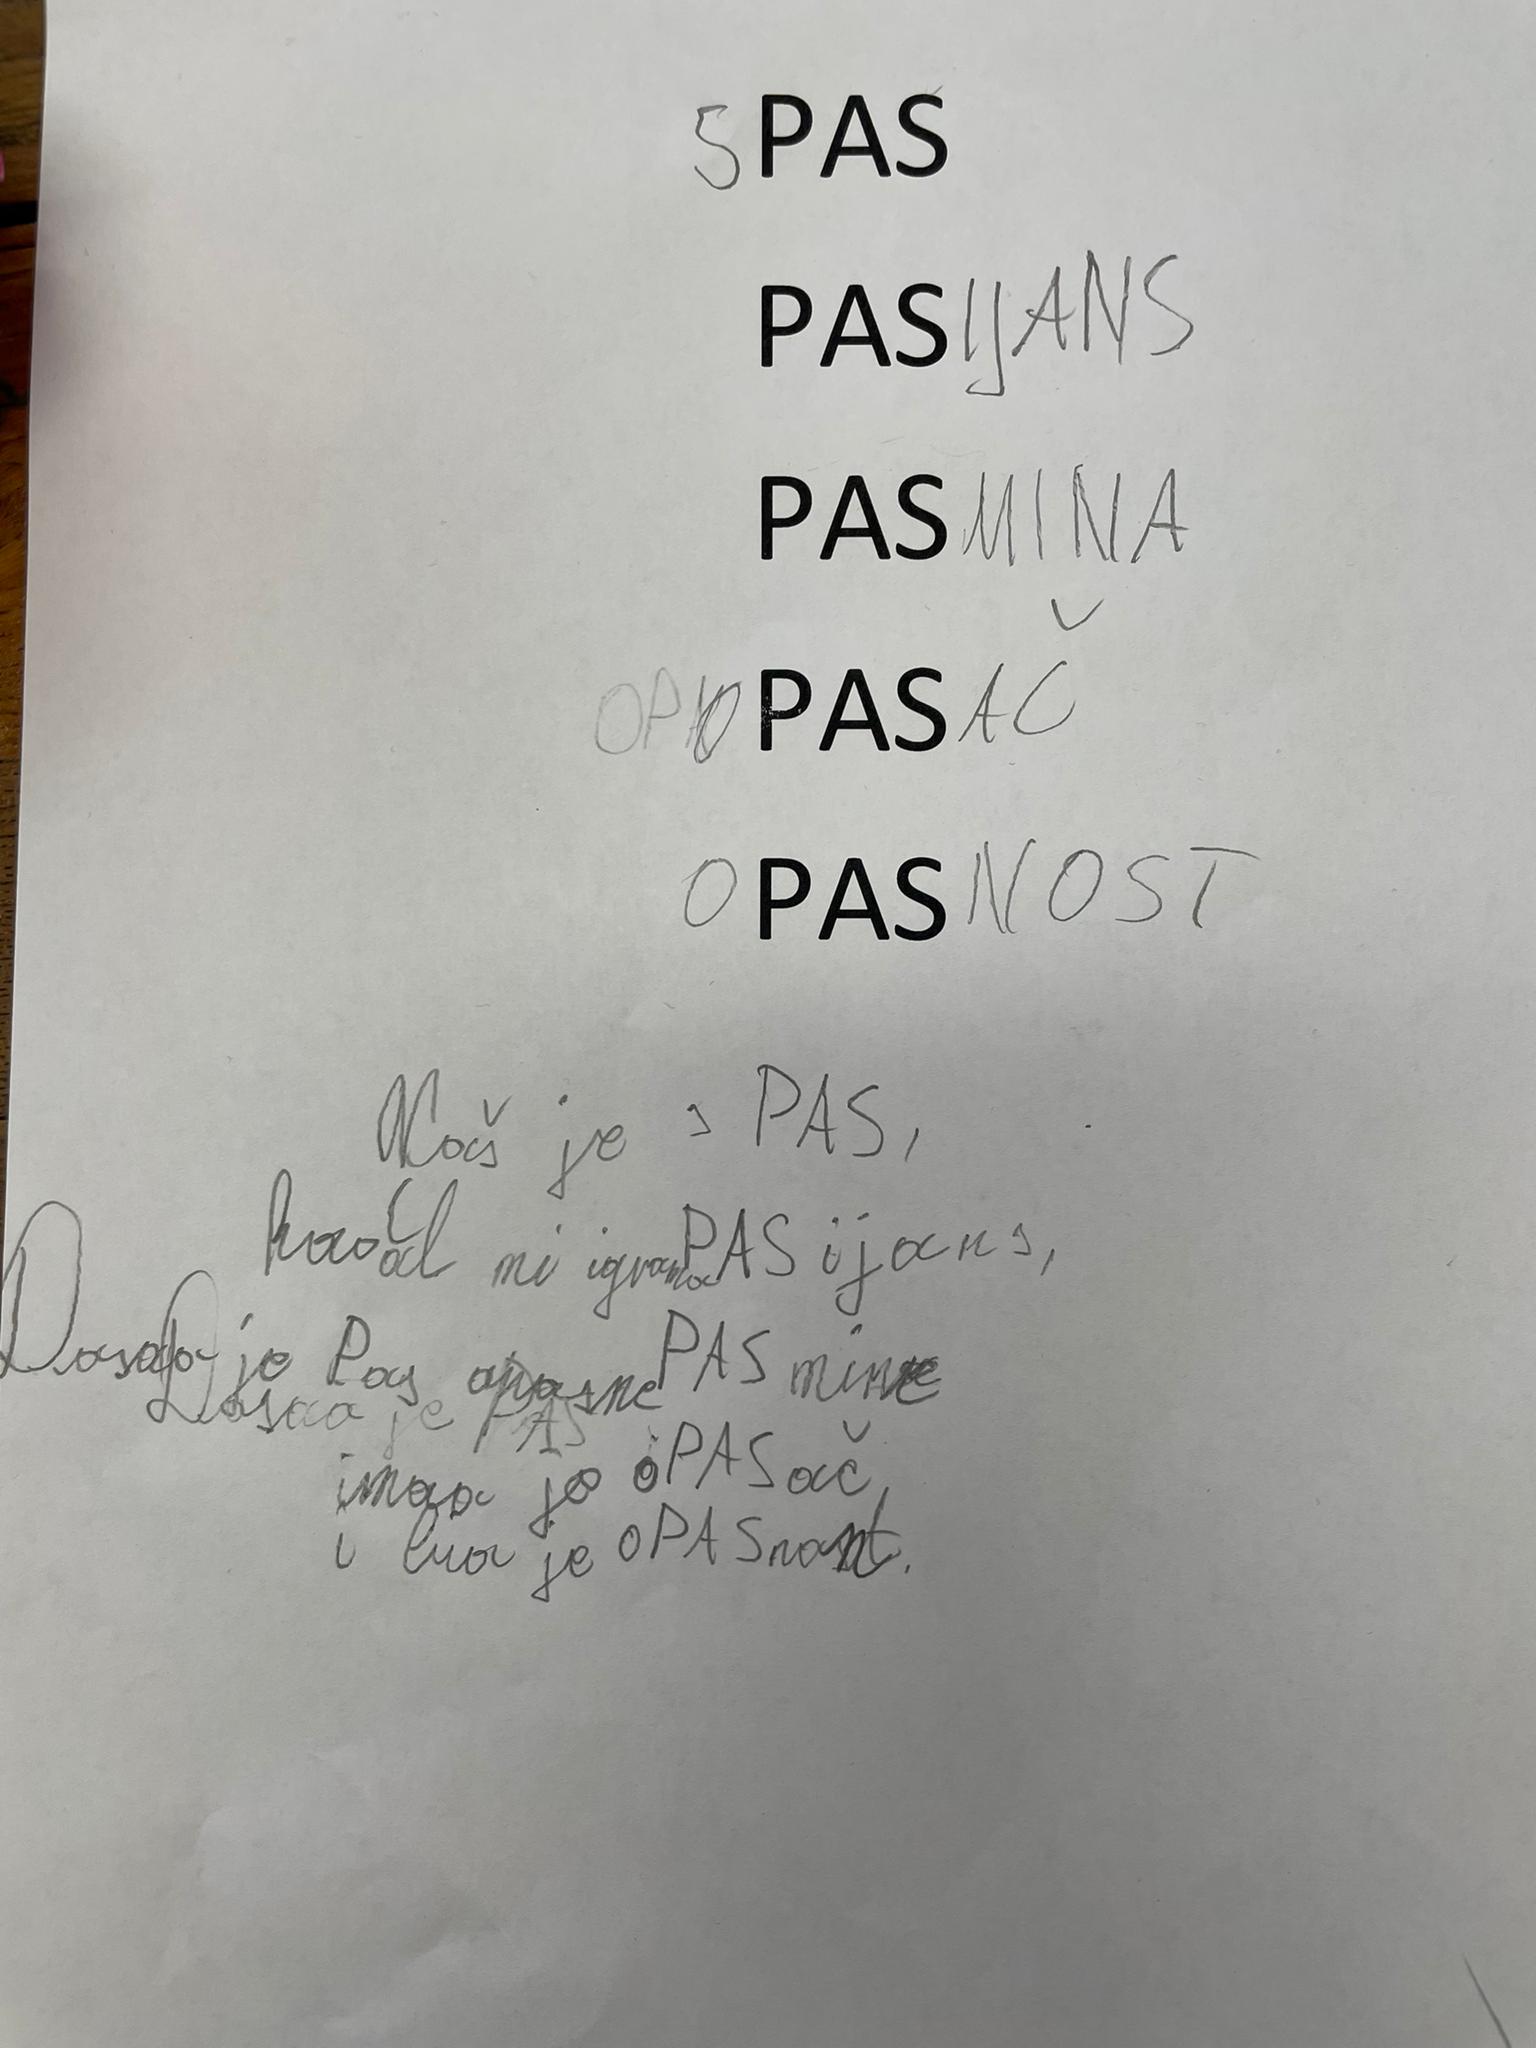 SPAS
PASIJANS
PASMINA
OPASAČ
OPASNOST
Naš je s PAS,
kad mi igra PASijans,
Dosada je Pas opasne PASmine
Dosaa je PAS
imaa je oPASač,
i bua je oPASnost.